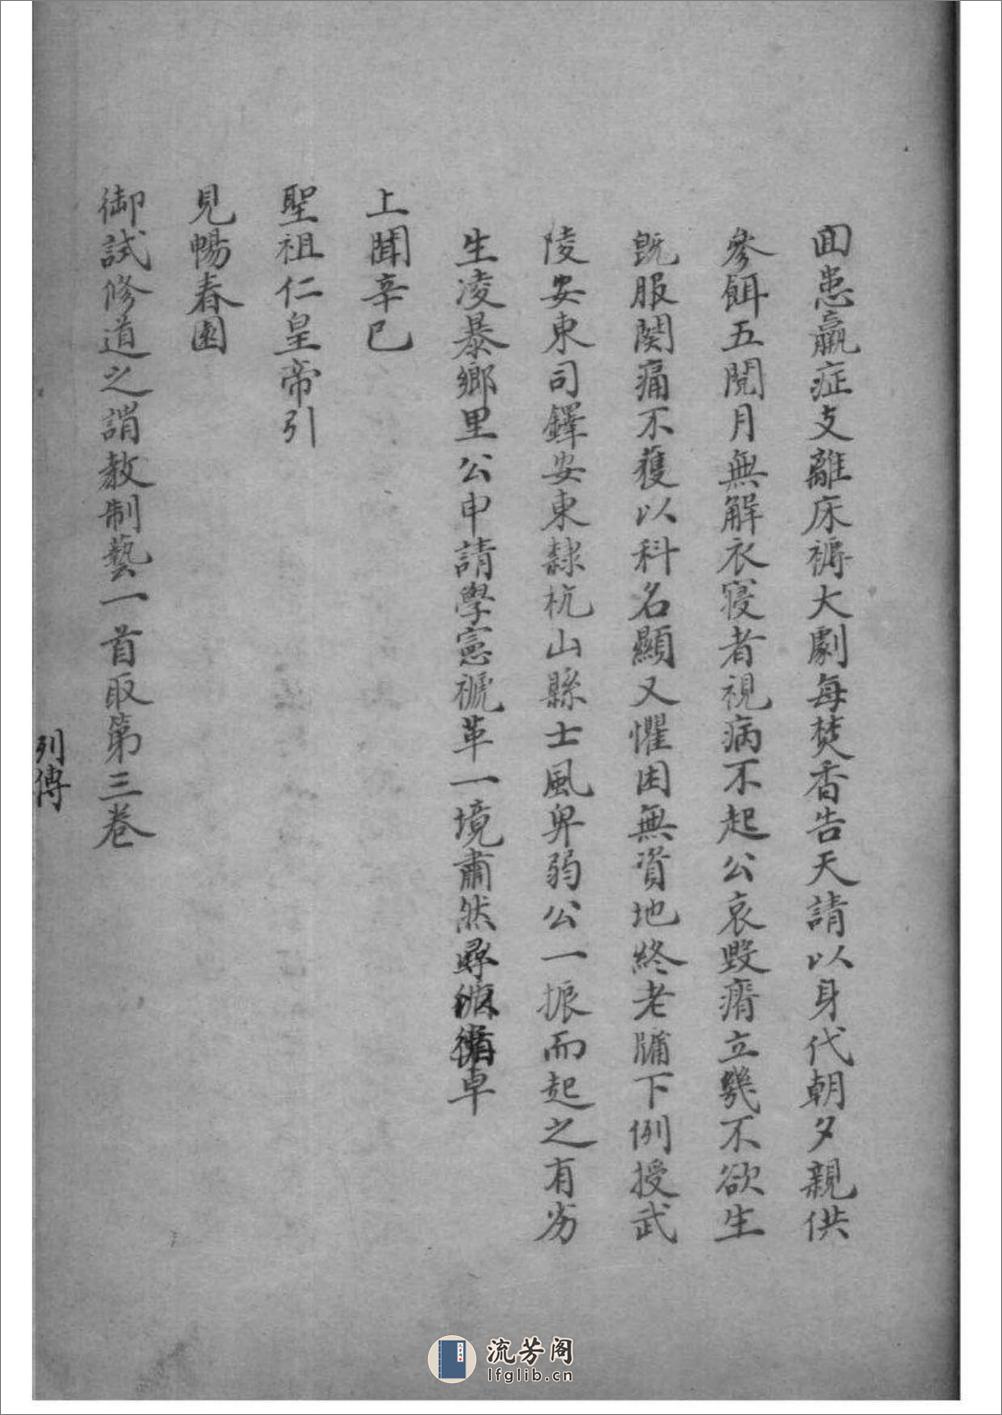 回患羸症支離床褥大劇每焚香告天請以身代朝夕親供
參餌五閱月無解衣寢者視病不起公哀毀瘠立幾不欲生
既服闋痛不獲以科名顯又懼困無資地終老牖下例授武
陵安東司鐸安東隸杭山縣士風卑弱公一振而起之有劣
生凌暴鄉里公申請學憲褫革一境肅然尋循卓
上聞辛巳
聖祖仁皇帝引
見暢春園
御試修道之謂教制藝一首取第三卷
列傳
流芳阁
lfglib.cn